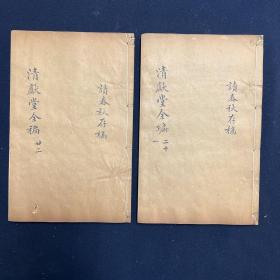 讀春秋存稿
清獻堂全編
二十一
讀春秋存稿
清獻堂全編
廿二